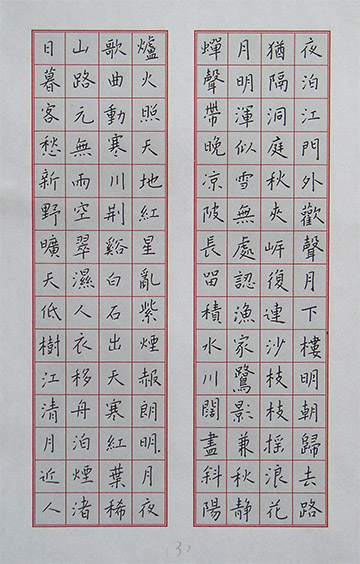 夜泊江門外歡聲月下樓明朝歸去路
猶隔洞庭秋夾岍復連沙枝枝搖浪花
月明渾似雪無處認漁家鷺影兼秋静
蟬聲帶晚涼陂長留積水川闊盡斜陽
爐火照天地紅星亂紫煙赧朗明月夜
歌曲動寒川荆谿白石出天寒紅葉稀
山路元無雨空翠濕人衣移舟泊煙渚
日暮客愁新野曠天低樹江清月近人
(3)